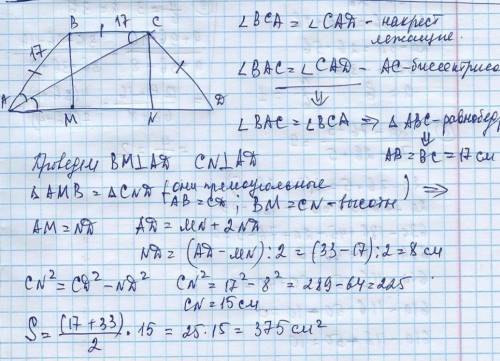 B 17 C
17
A M N D
∠BCA = ∠CAD - накрест
лежащие.
∠BAC = ∠CAD - AC - биссектриса
⇓
∠BAC = ∠BCA ⇒ △ABC - равнобедр
⇓
AB = BC = 17 см
Проведём BM⊥AD CN⊥AD
△AMB = △CND (они прямоугольные
AB = CD; BM = CN - высоты) ⇒
AM = ND AD = MN + 2ND
ND = (AD - MN) : 2 = (33 - 17) : 2 = 8 см
CN² = CD² - ND² CN² = 17² - 8² = 289 - 64 = 225
CN = 15 см
S = (17 + 33)/2 · 15 = 25 · 15 = 375 см²